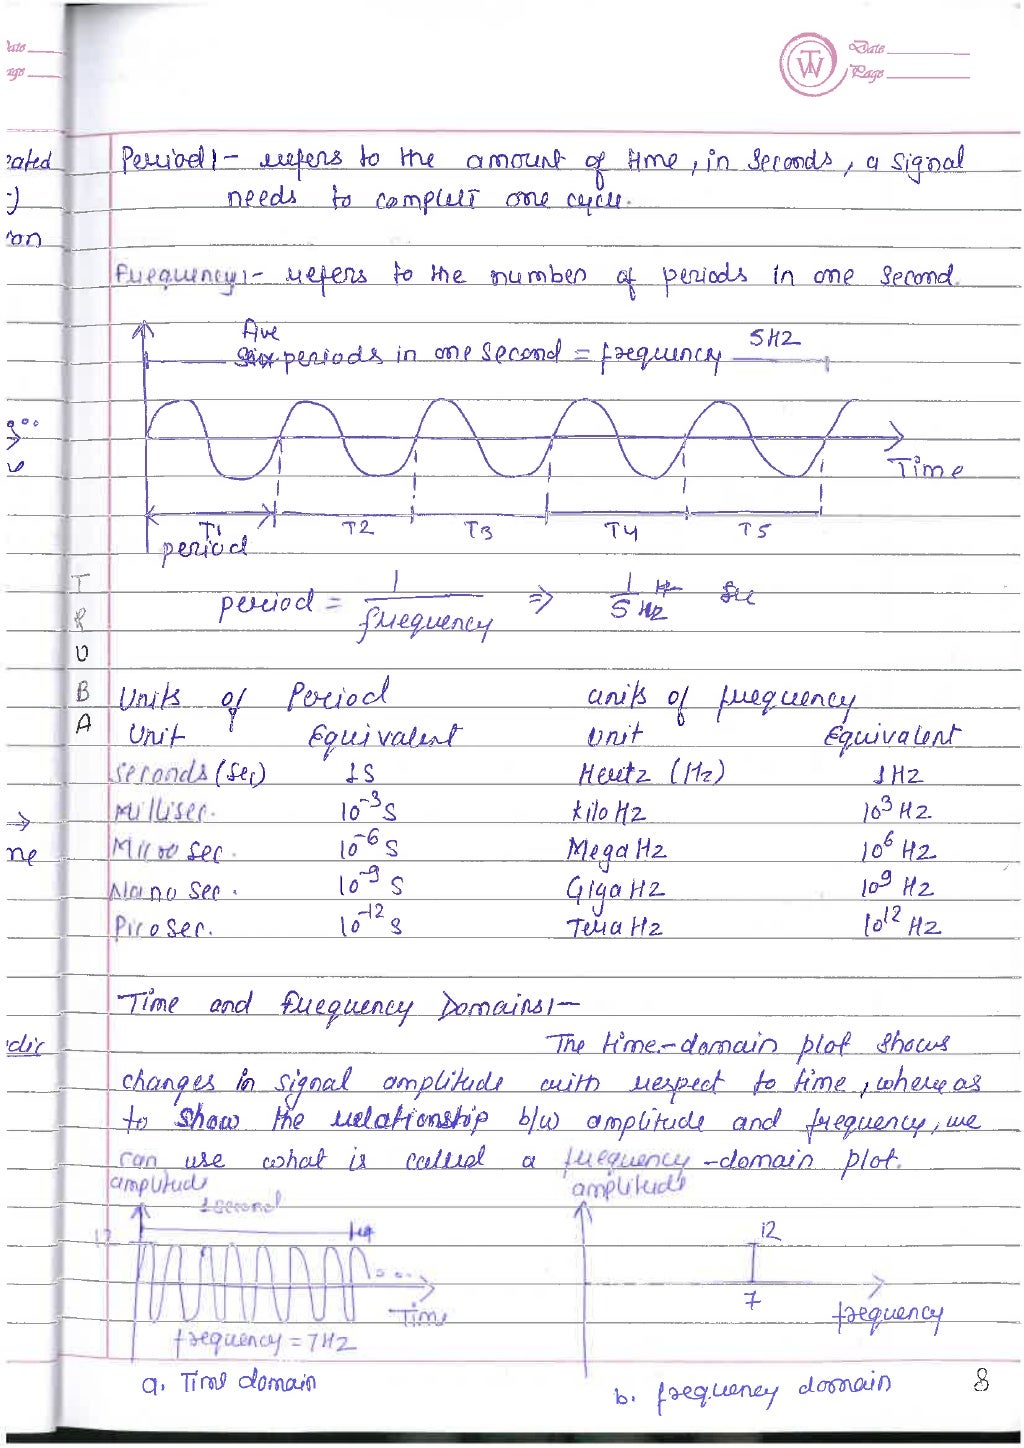 Date
Page
TW
Date
Page
eated
:-)
on
Period:- refers to the amount of time, in seconds, a signal
needs to complete one cycle.
Frequency:- refers to the number of periods in one second.
five
Six periods in one second = frequency 5HZ
Time
T1 T2 T3 T4 T5
period
period = 1 / frequency => 1 / 5 Hz Sec
T
R
U
B
A
Units of Period units of frequency
Unit Equivalent Unit Equivalent
Seconds (Sec) 1S Hertz (Hz) 1HZ
Millisec. 10⁻³S kilo HZ 10³ HZ
ne Micro sec. 10⁻⁶ S Mega HZ 10⁶ HZ
Nano sec. 10⁻⁹ S Giga HZ 10⁹ HZ
Pico sec. 10⁻¹² S Tera HZ 10¹² HZ
Time and Frequency Domains:-
dic The time-domain plot shows
changes in signal amplitude with respect to time, whereas
to show the relationship b/w amplitude and frequency, we
can use what is called a frequency-domain plot.
amplitude amplitude
1 second
12
12
Time 7 frequency
frequency = 7HZ
a. Time domain b. frequency domain 8